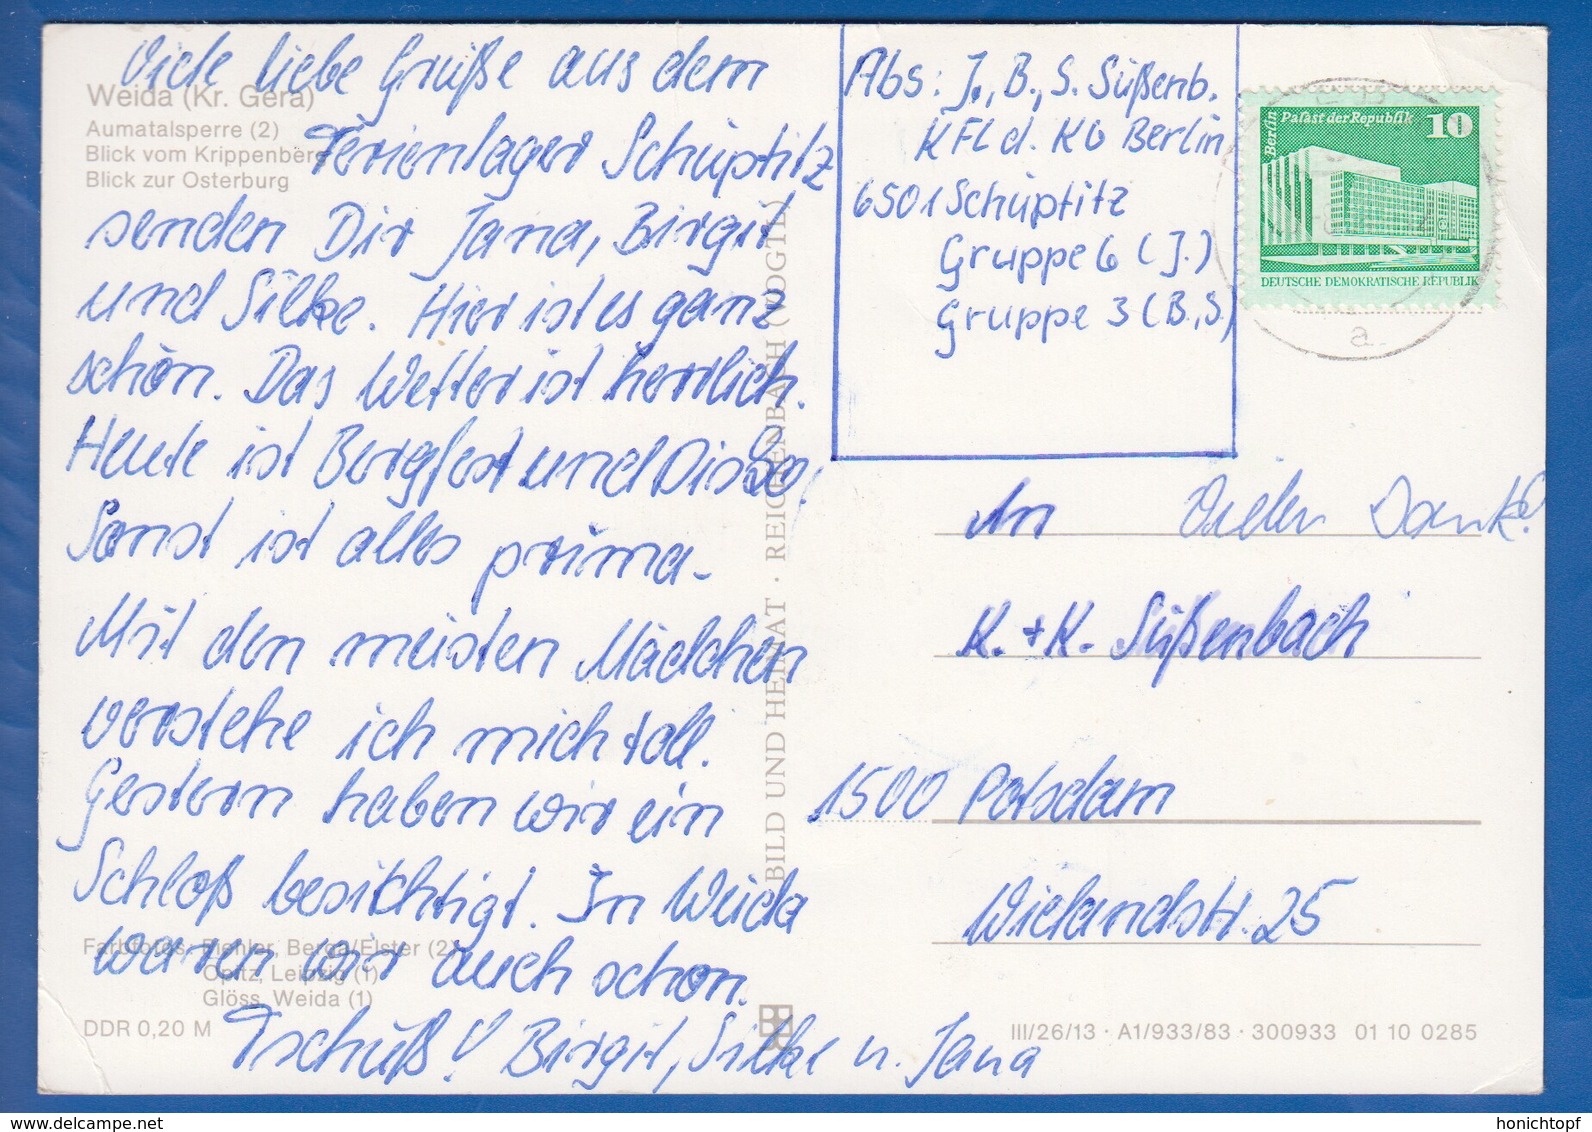 Viele liebe Grüße aus dem
Ferienlager Schüptitz
senden Dir Jana, Birgit
und Silke. Hier ist es ganz
schön. Das Wetter ist herrlich.
Heute ist Bergfest und Disco,
Sonst ist alles prima.
Mit den meisten Mädchen
verstehe ich mich toll.
Gestern haben wir ein
Schloß besichtigt. In Weida
waren wir auch schon.
Tschüß! Birgit, Silke u. Jana
Weida (Kr. Gera)
Aumatalsperre (2)
Blick vom Krippenberg
Blick zur Osterburg
Farbfotos: Piehler, Berga/Elster (2)
Opitz, Leipzig (1)
Glöss, Weida (1)
DDR 0,20 M
BILD UND HEIMAT · REICHENBACH (VOGTL)
Abs: J., B., S. Süßenb.
KFL d. KG Berlin
6501 Schüptitz
Gruppe 6 (J.)
Gruppe 3 (B., S.)
Berlin
Palast der Republik 10
DEUTSCHE DEMOKRATISCHE REPUBLIK
a
An Vielen Dank!
K. + K. Süßenbach
1500 Potsdam
Wielandstr. 25
III/26/13 · A1/933/83 · 300933 01 10 0285
www.delcampe.net
honichtopf